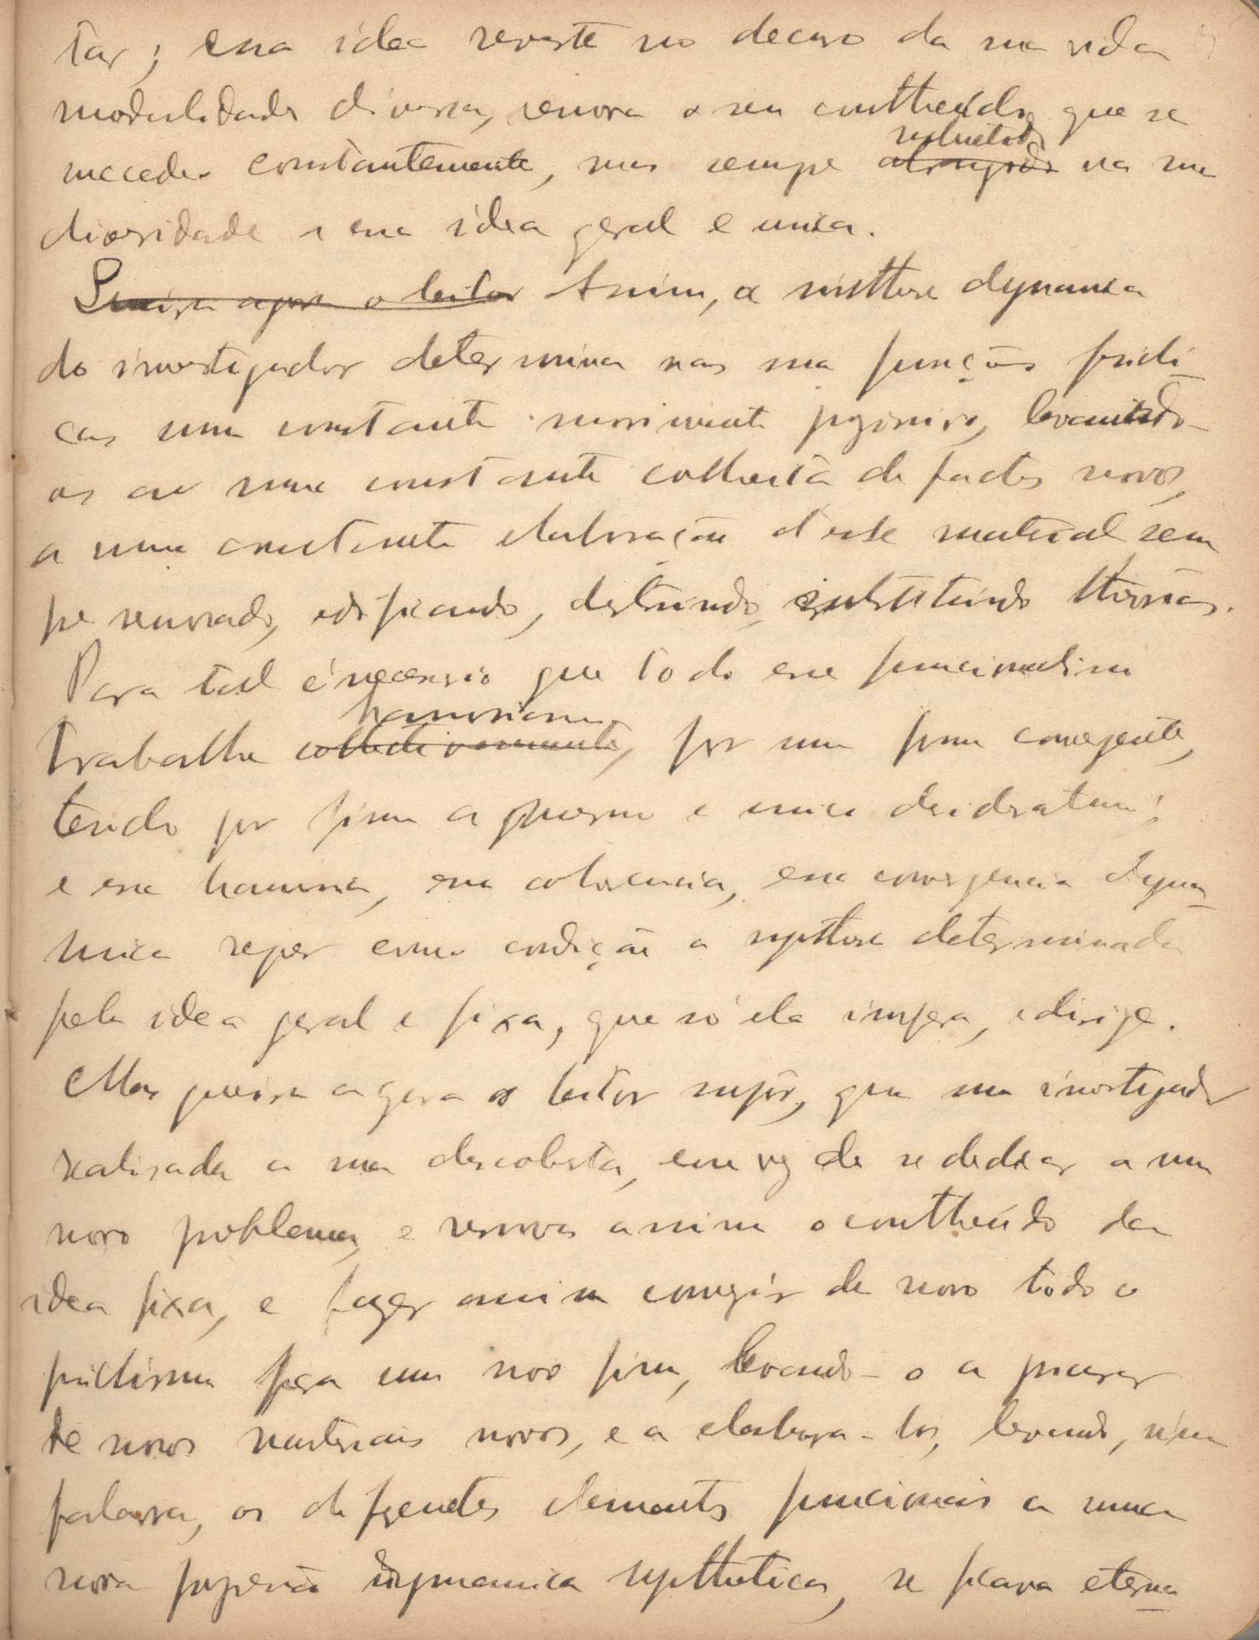 tar; essa idea reveste no decurso da sua vida
modalidades diversas, renova o seu conttheúdo, que se
succede constantemente, mas sempre na sua
diversidade a essa idea geral e unica.
Assim, a synthese dynamica
do investigador determina nas suas funções psichi-
cas um constante movimento progressivo, levando-
as a uma constante colheita de factos novos,
a uma constante elaboração d'esse material sem
pre renovado, edificando, destruindo, substituindo theorias.
Para tal é necessario que todo esse funcionalismo
harmonicam.
trabalhe collectivamente, por uma forma convergente,
tendo por fim o mesmo e unico desideratum;
e essa harmonia, essa coherencia, essa convergencia dyna-
mica requer como condição a synthese determinada
pela idea geral e fixa, que só ela impera, e dirige.
Mas queira agora o leitor suppôr, que um investigador
realisada a sua descoberta, em vez de se dedicar a um
novo problema, e renovar assim o conttheúdo da
idea fixa, e fazer assim convergir de novo todo o
psichismo para um novo fim, levando-o a procurar
de novo materiais novos, e a elabora-los, levando, n'uma
palavra, os diferentes elementos funcionais a uma
nova dynamica synthetica, se ficava eterna-